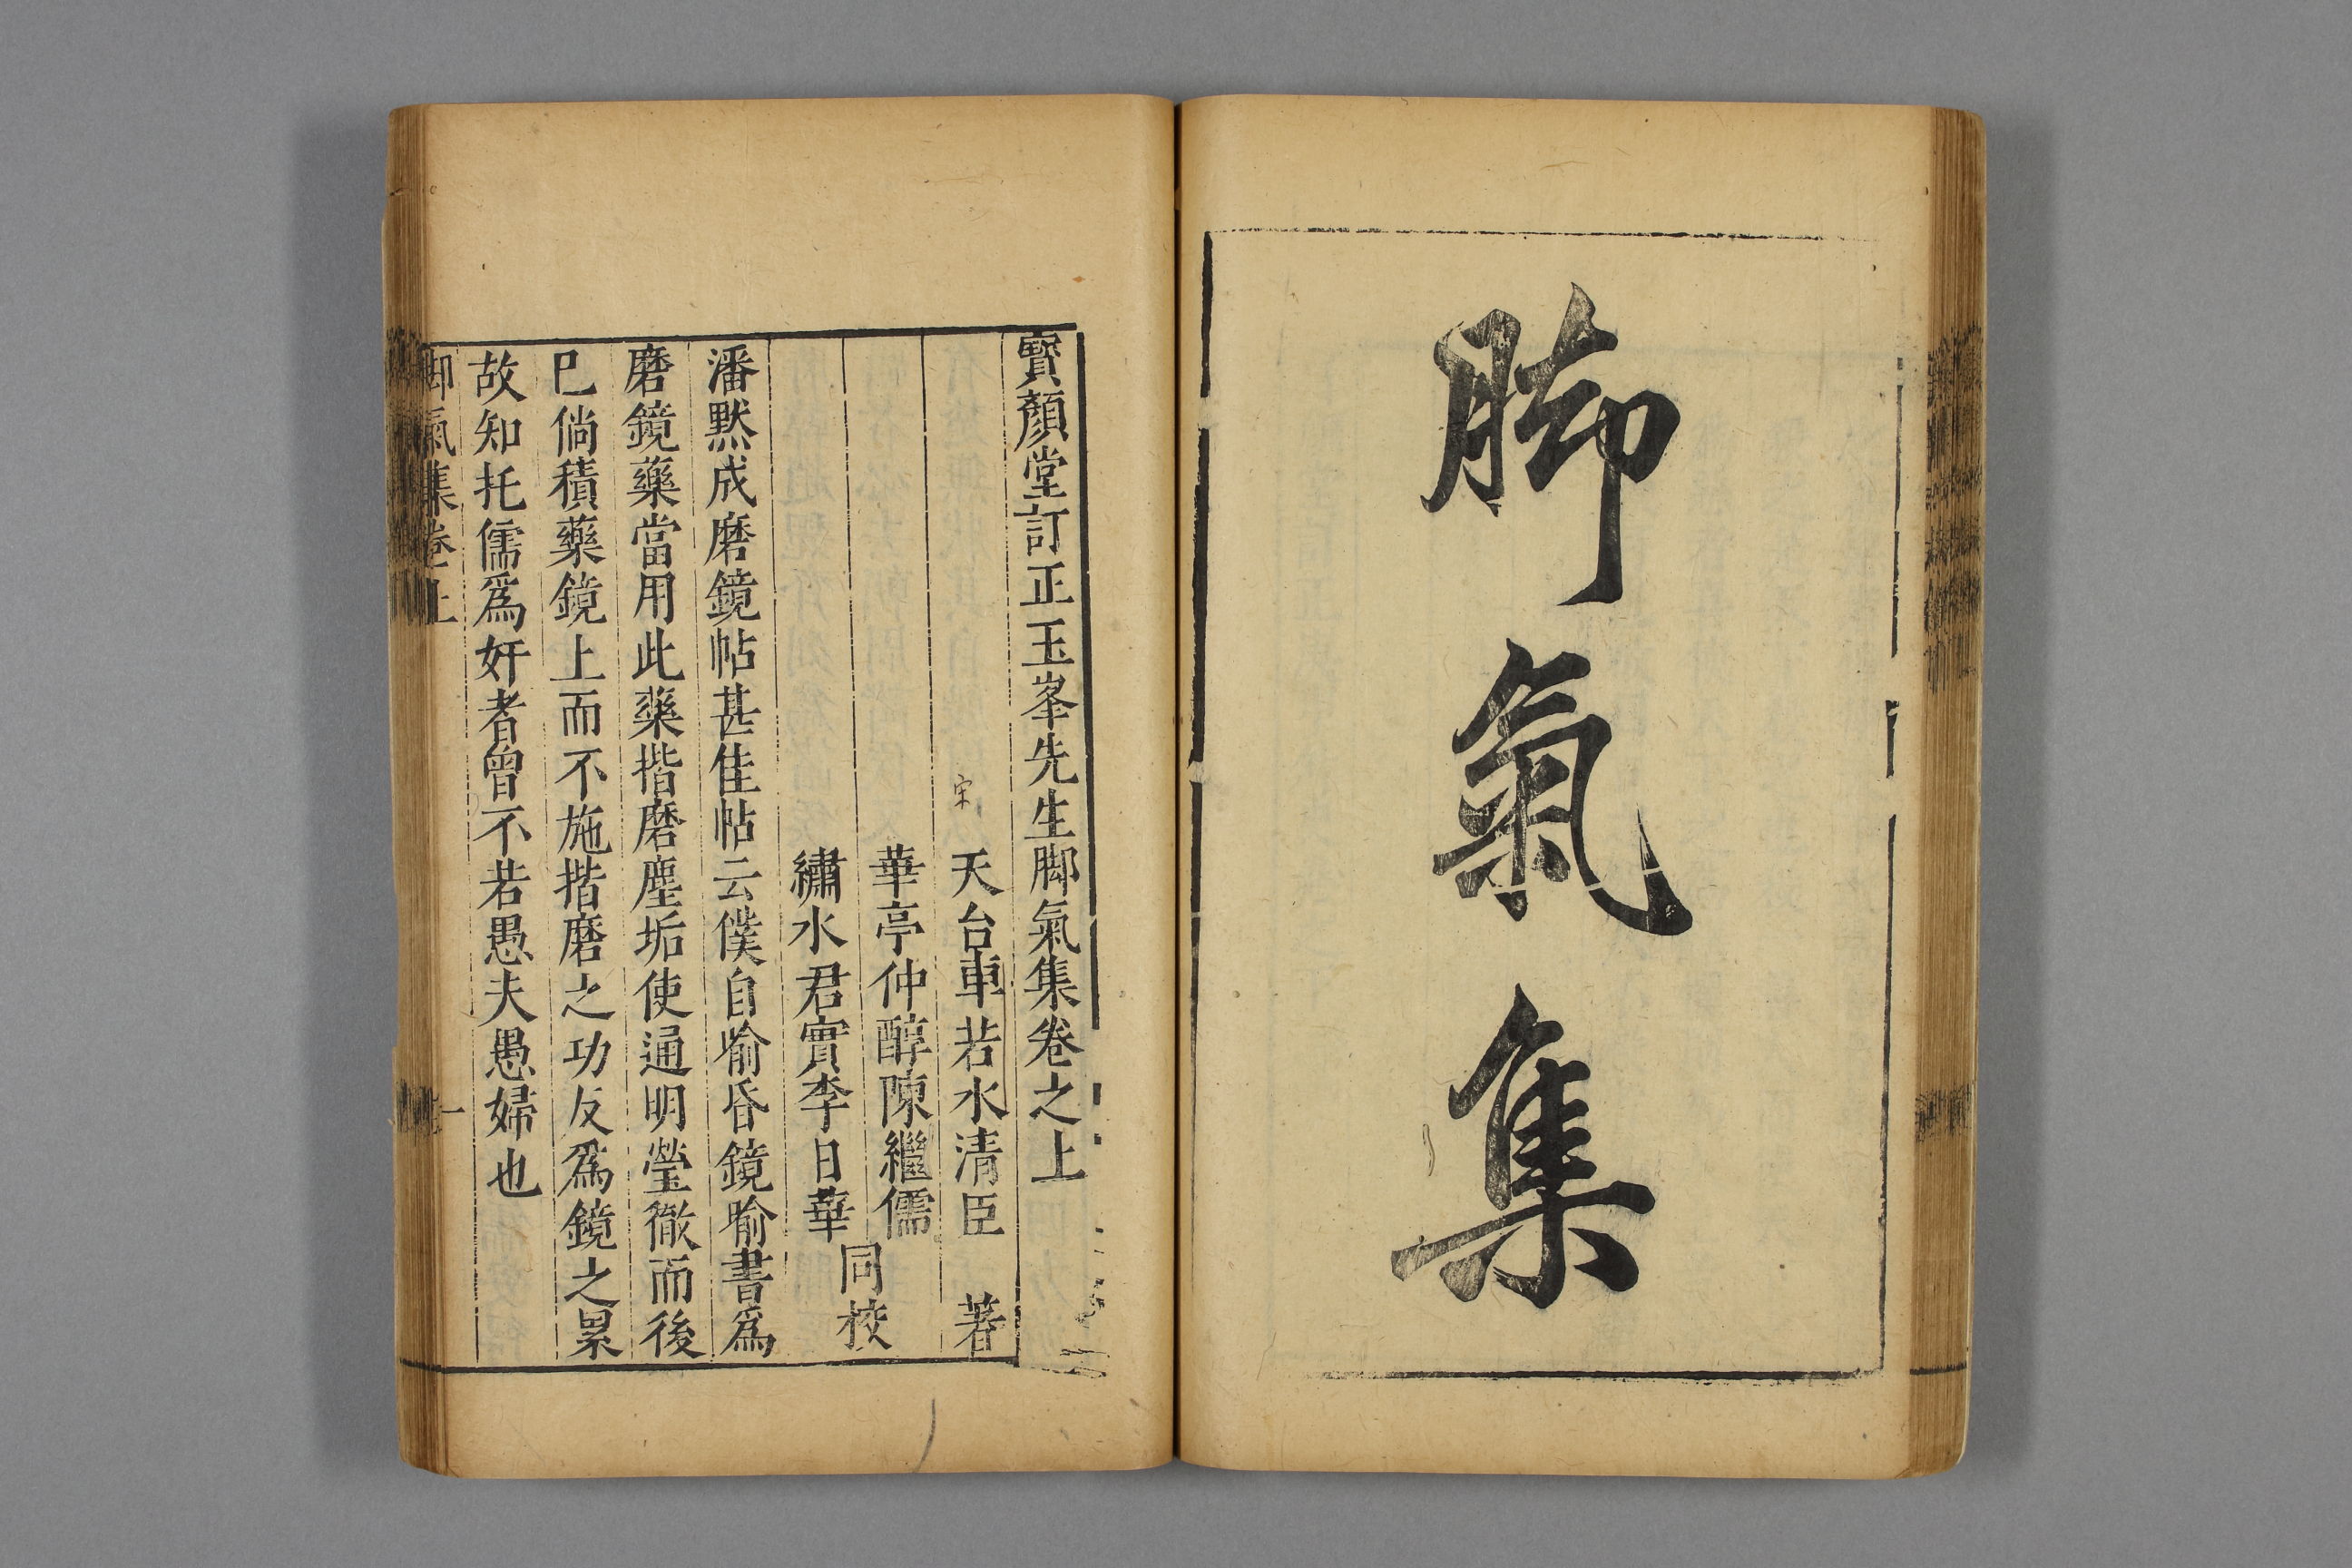 脚氣集
寳顏堂訂正玉峯先生脚氣集卷之上
宋
天台車若水清臣 著
華亭仲醇陳繼儒
繡水君實李日華
同校
潘默成磨鏡帖甚佳帖云僕自喻昏鏡喻書爲
磨鏡藥當用此藥揩磨塵垢使通明瑩徹而後
已倘積藥鏡上而不施揩磨之功反爲鏡之累
故知托儒爲奸者曾不若愚夫愚婦也
脚氣集卷上
一